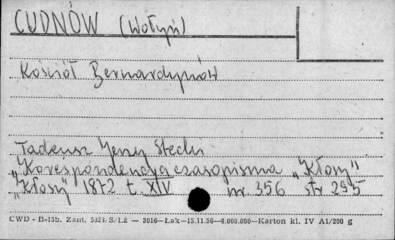 CUDNÓW (Wołyń)
Kościół Bernardynów
Tadeusz Jerzy Stecki
"Korespondencja czasopisma "Kłosy"
"Kłosy" 1872 t. XIV nr 356 str 295
CWD - D-115b. Zam. 5421/S/Lż — 3016—Łak—15.11.56—6.000.000—Karton kl. IV A1/200 g